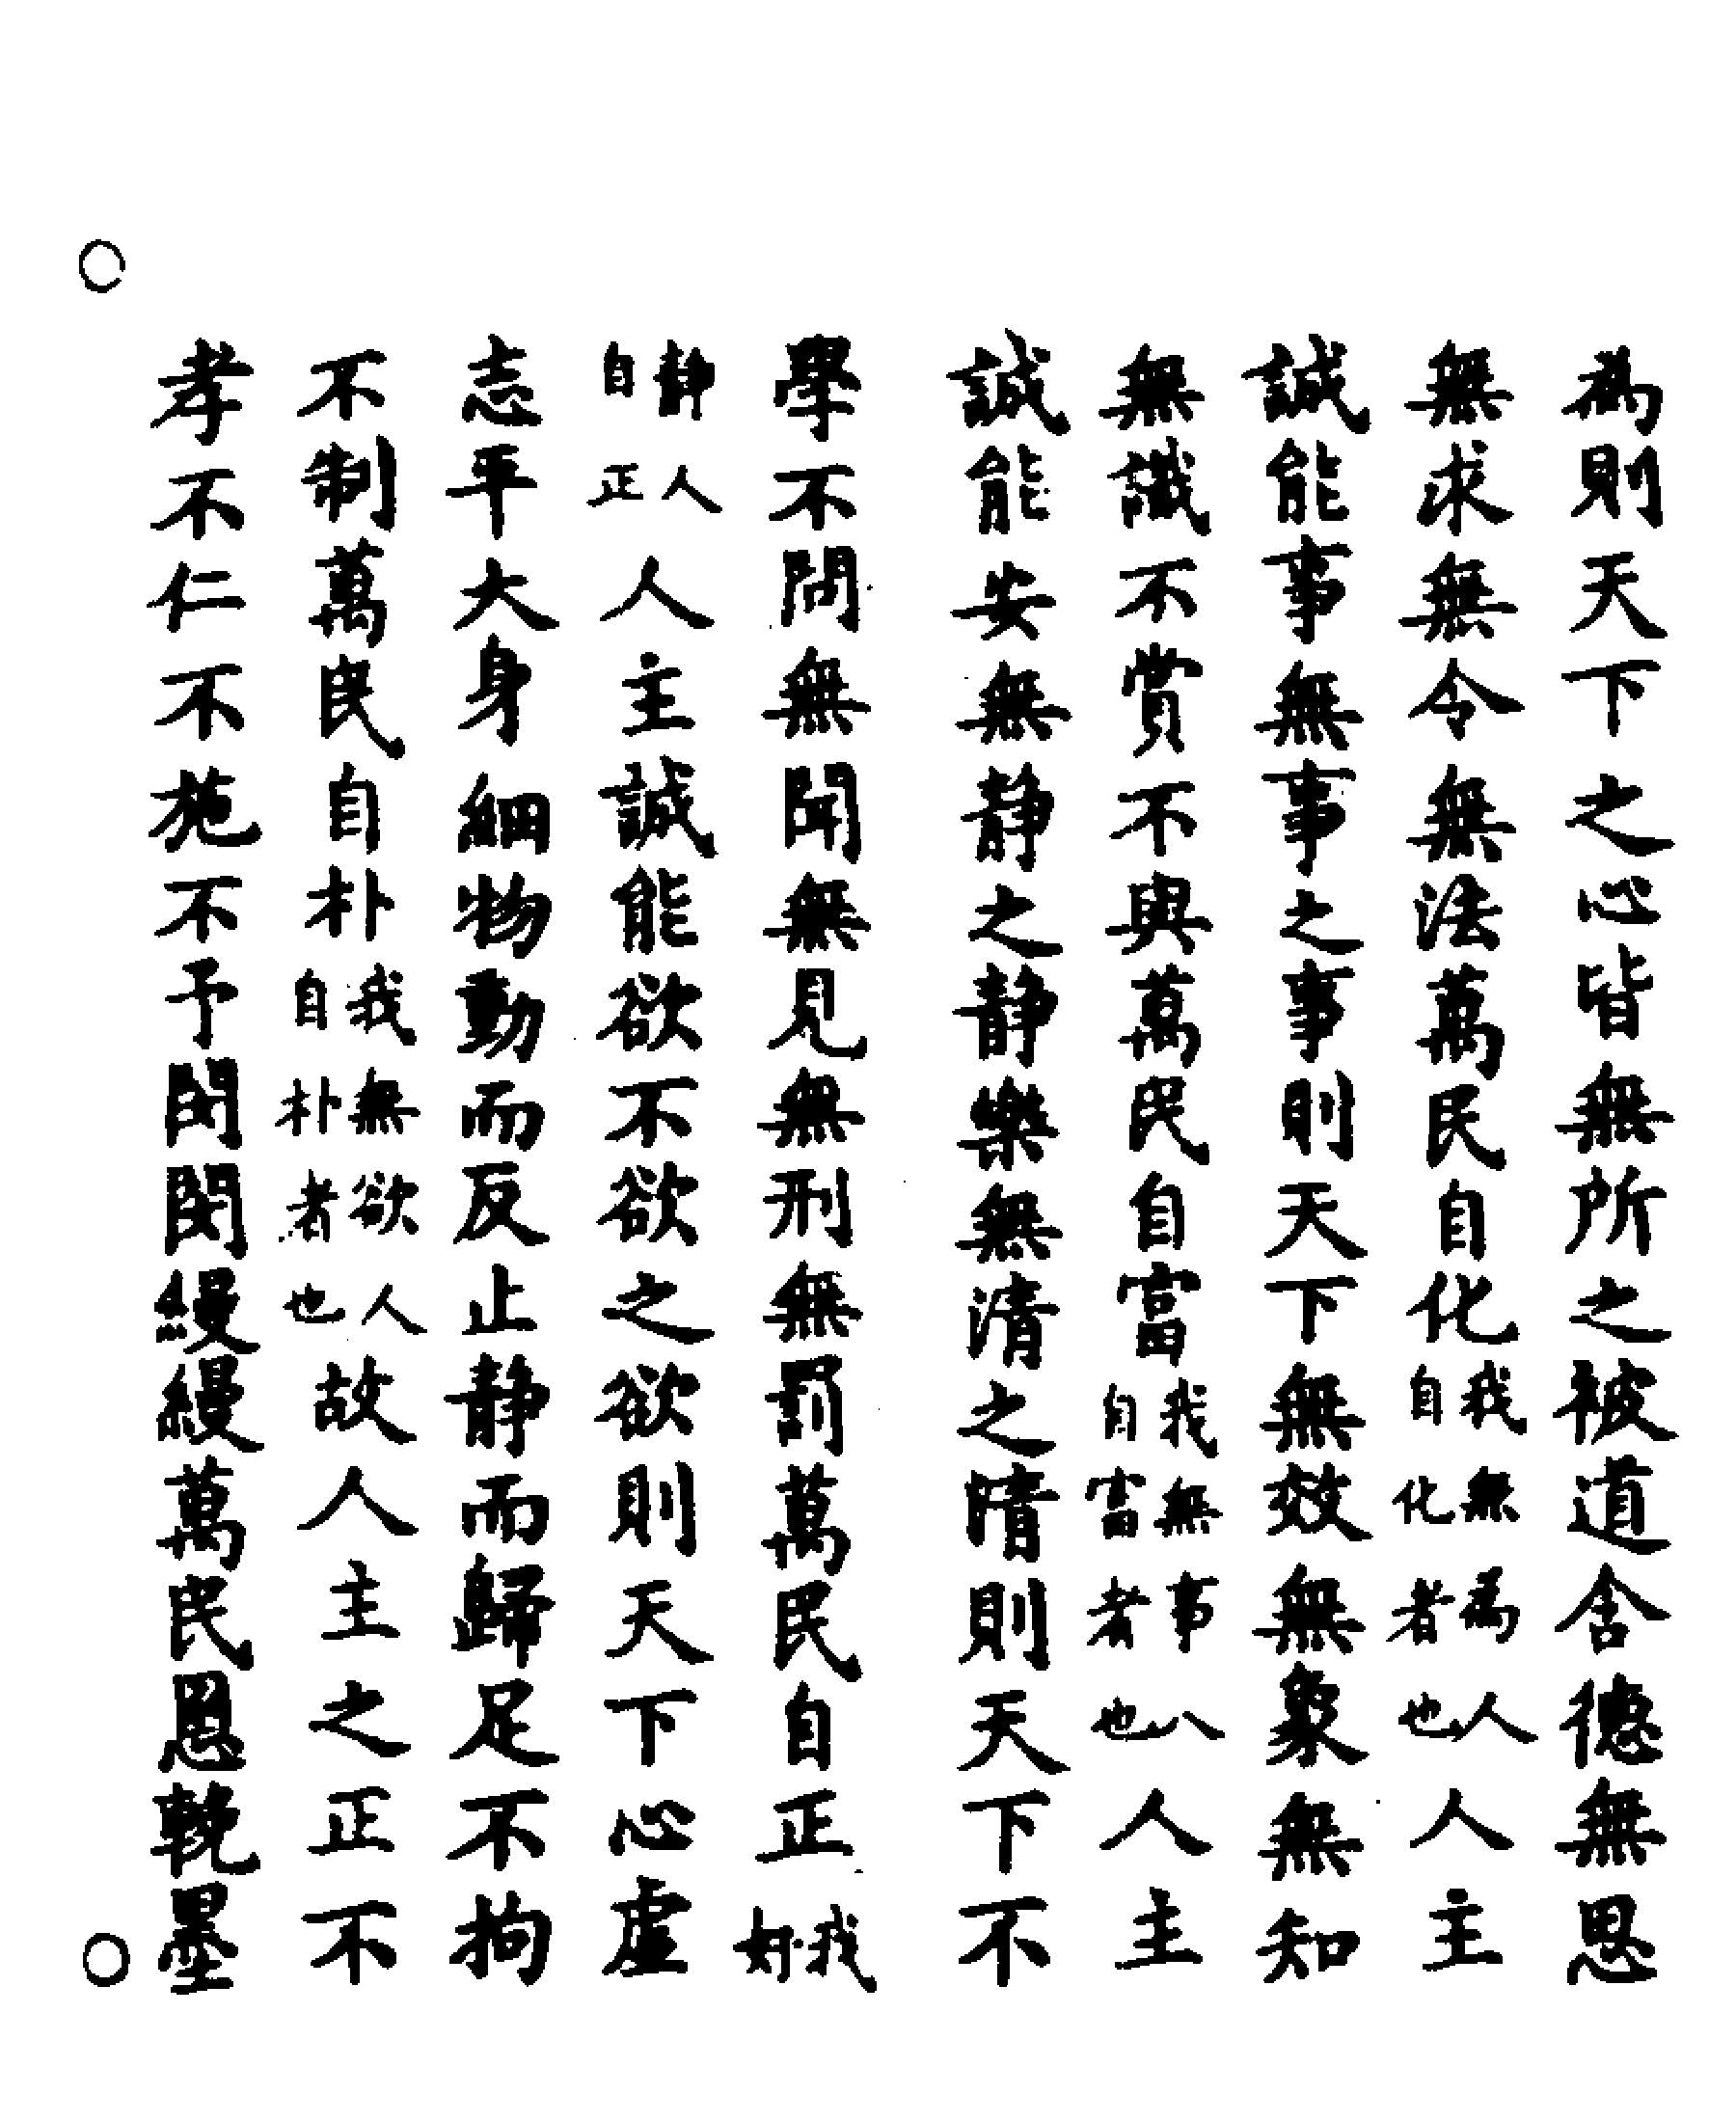 為則天下之心皆無所之被道含德無恩
無求無令無法萬民自化我無為人自化者也人主
誠能事無事之事則天下無效無象無知
無識不賞不與萬民自富我無事人自富者也人主
誠能安無靜之靜樂無清之清則天下不
學不問無聞無見無刑無罰萬民自正我好
靜人自正人主誠能欲不欲之欲則天下心虛
志平大身細物動而反止靜而歸足不拘
不制萬民自朴我無欲人自朴者也故人主之正不
孝不仁不施不予閔閔縵縵萬民恩輓墨